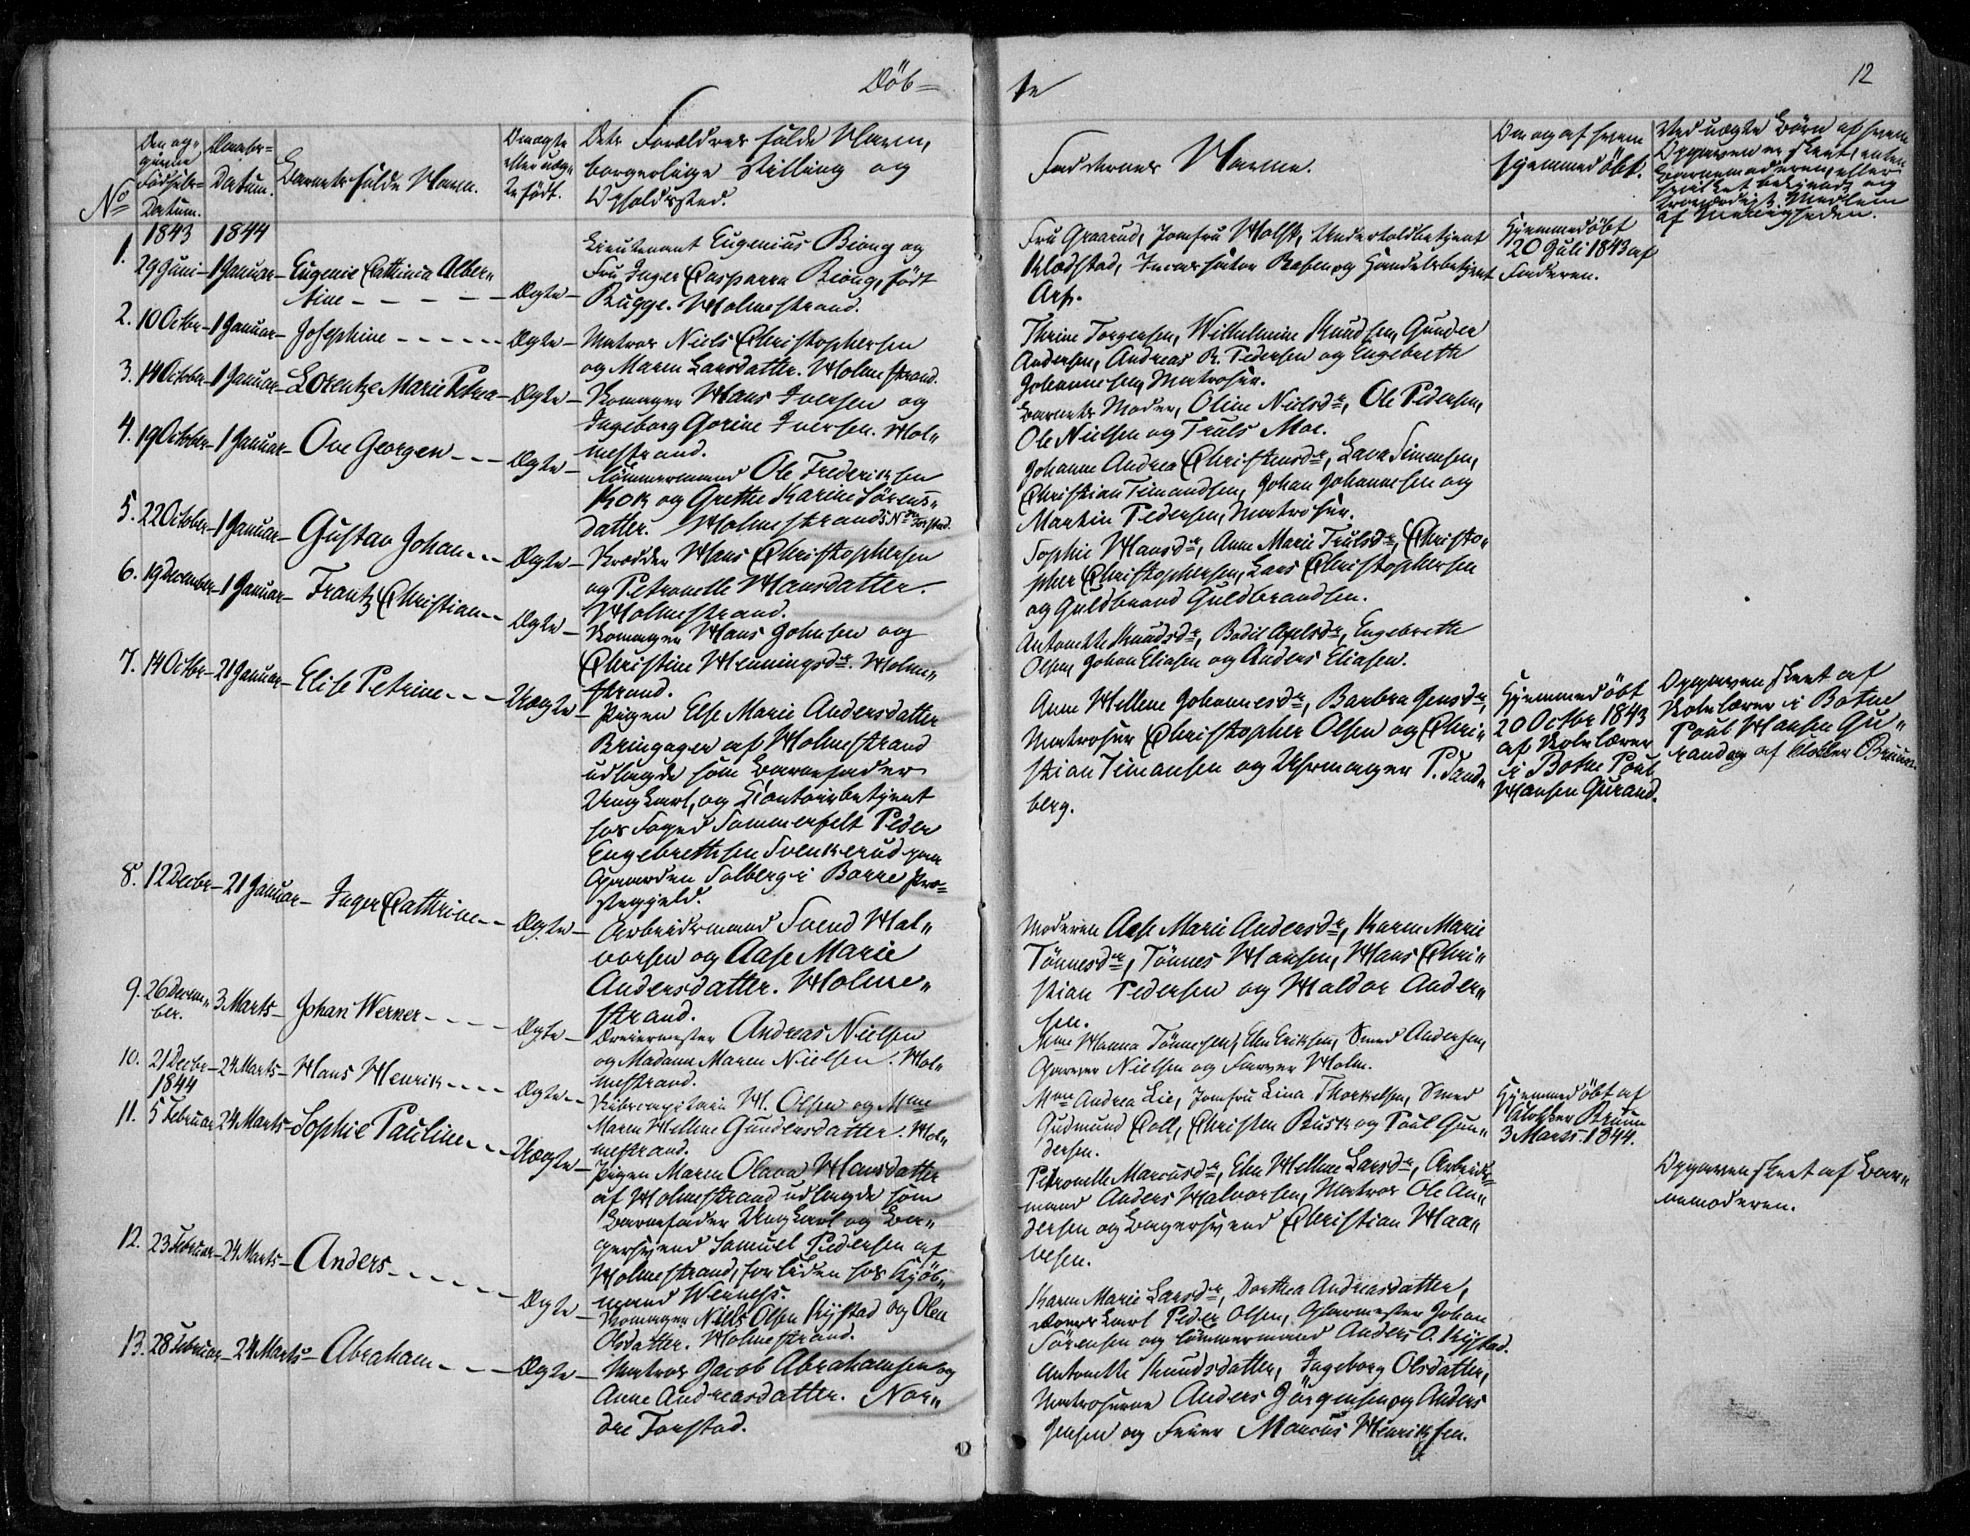 Döb=
te
12
No
Den op=
givne
Födsels=
Datum.
Daabs=
Datum.
Barnets fulde Navn.
Om ægte
eller uæg=
te født.
Dets Forældres fulde Navn,
borgerlige Stilling og
Opholdssted.
Faddernes Navne.
Om og af hvem
hjemmedöbt.
Ved uægte Börn af hvem
Opgaven er skeet, enten
Barnemoderen, eller
hvilket bekjendt og
troværdigt Medlem
af Menigheden.
1843 1844
1. 29 Juni - 1 Januar - Eugenie Cathinca Alber=
tine - Ægte -
Lieutenant Eugenius Biong og
Fru Inger Casparra Biong, född
Bugge. Holmestrand.
Fru Graarud, Jomfru Holst, Undertoldbetjent
Kladstad, Procurator Basen og Handelsbetjent
Arp.
Hjemmedöbt
20 Juli 1843 af
Faderen.
2. 10 Octbr - 1 Januar - Josephine - Ægte -
Matros Niels Christophersen
og Maren Larsdatter. Holmestrand.
Thrine Torgersen, Wilhelmine Knudsen, Gunder
Andersen, Andreas R. Pedersen og Engebreth
Johannesen, Matroser.
3. 14 October - 1 Januar - Lorentze Marie Petrea - Ægte -
Skomager Hans Iversen og
Ingeborg Gorine Iversen. Hol=
mestrand.
Barnets Moder, Oline Nielsdr, Ole Pedersen,
Ole Nielsen og Truls Moe.
4. 19 October - 1 Januar - Ove Georgen - Ægte -
Tömmermand Ole Frederiksen
Kok og Grethe Karine Sörens=
datter. Holmestrands Ndre Torstad.
Johanne Andrea Christensdr, Lava Simensen,
Christian Timandsen, Johan Johannesen og
Martin Pedersen, Matroser.
5. 22 October - 1 Januar - Gustav Johan - Ægte -
Skrædder Hans Christophersen
og Petronelle Hansdatter.
Holmestrand.
Sophie Hansdr, Anne Marie Trulsdr, Christo=
pher Christophersen, Lars Christophersen
og Guldbrand Guldbrandsen.
6. 19 December - 1 Januar - Frantz Christian - Ægte -
Skomager Hans Johnsen og
Christine Henningsdr. Holme=
strand.
Antonette Knudsdr, Bodil Axelsdr, Engebreth
Olsen, Johan Eliasen og Anders Eliasen.
7. 14 Octbr - 21 Januar - Elise Petrine - Uægte -
Pigen Else Marie Andersdatter
Bringager af Holmestrand
udlagde som Barnefader
Ungkarl, og Contoirbetjent
hos Foged Sommerfelt Peder
Engebrethsen Svenkerud paa
Gaarden Solberg i Borre Præ=
stegjeld.
Anne Hellene Johannesdr, Barbra Jensdr,
Matroser Christopher Olsen og Chri=
stian Timansen og Uhrmager P. Sand=
berg.
Hjemmedöbt
20 Octbr 1843
af Skolelærer
i Botne Poul
Hansen Gurand.
Opgaven skeet af
Skolelærer i Botne
Poul Hansen Gu=
rand og af Klokker Bruun.
8. 12 Decbr - 21 Januar - Inger Cathrine - Ægte -
Arbeidsmand Svend Hal=
vorsen og Aase Marie
Andersdatter. Holme=
strand.
Moderen Aase Marie Andersdr, Karen Marie
Tönnesdr, Tönnes Hansen, Hans Chri=
stian Pedersen og Haldor Ander=
sen.
9. 26 Decem=
ber. - 3 Marts - Johan Werner - Ægte -
Dreiermester Andreas Nielsen
og Madame Maren Nielsen. Hol=
mestrand.
Mme Hanna Tönnesen, Elen Eriksen, Smed Andersen,
Garver Nielsen og Farver Holm.
10. 21 Decbr - 24 Marts - Hans Henrik - Ægte -
Skibscapitain H. Olsen og Mme
Maren Hellene Gundersdatter. Hol=
mestrand.
Mme Andrea Lie, Jomfru Lina Thorkelsen, Smed
Gudmund Coll, Christen Busk og Poul Gun=
dersen.
Hjemmedöbt af
Klokker Bruun
3 Marts 1844.
1844
11. 5 Februar - 24 Marts - Sophie Pauline - Uægte -
Pigen Maren Olava Hansdatter
af Holmestrand udlagde som
Barnefader Ungkarl og Ba=
gersvend Samuel Pedersen af
Holmestrand, for tiden hos Kjöb=
mand Wenness.
Petronelle Marcusdr, Elen Hellene Larsdr, Arbeids=
mand Anders Halvorsen, Matros Ole An=
dersen og Bagersvend Christian Haa=
vesen.
Opgaven skeet af Bar=
nemoderen.
12. 23 Februar - 24 Marts - Anders - Ægte -
Skomager Niels Olsen Kystad og Olea
Olsdatter. Holmestrand.
Karen Marie Larsdr, Dorthea Andreasdatter,
Peder Olsen, Johan
Sörensen og Tömmermand Anders O. Kystad.
13. 28 Februar - 24 Marts - Abraham - Ægte -
Matros Jacob Abrahamsen og
Anne Andreasdatter. Nor=
dre Torstad.
Antonette Knudsdatter, Ingeborg Olsdatter,
Matroserne Anders Jörgensen og Anders
Jensen og Feier Marcus Henriksen.